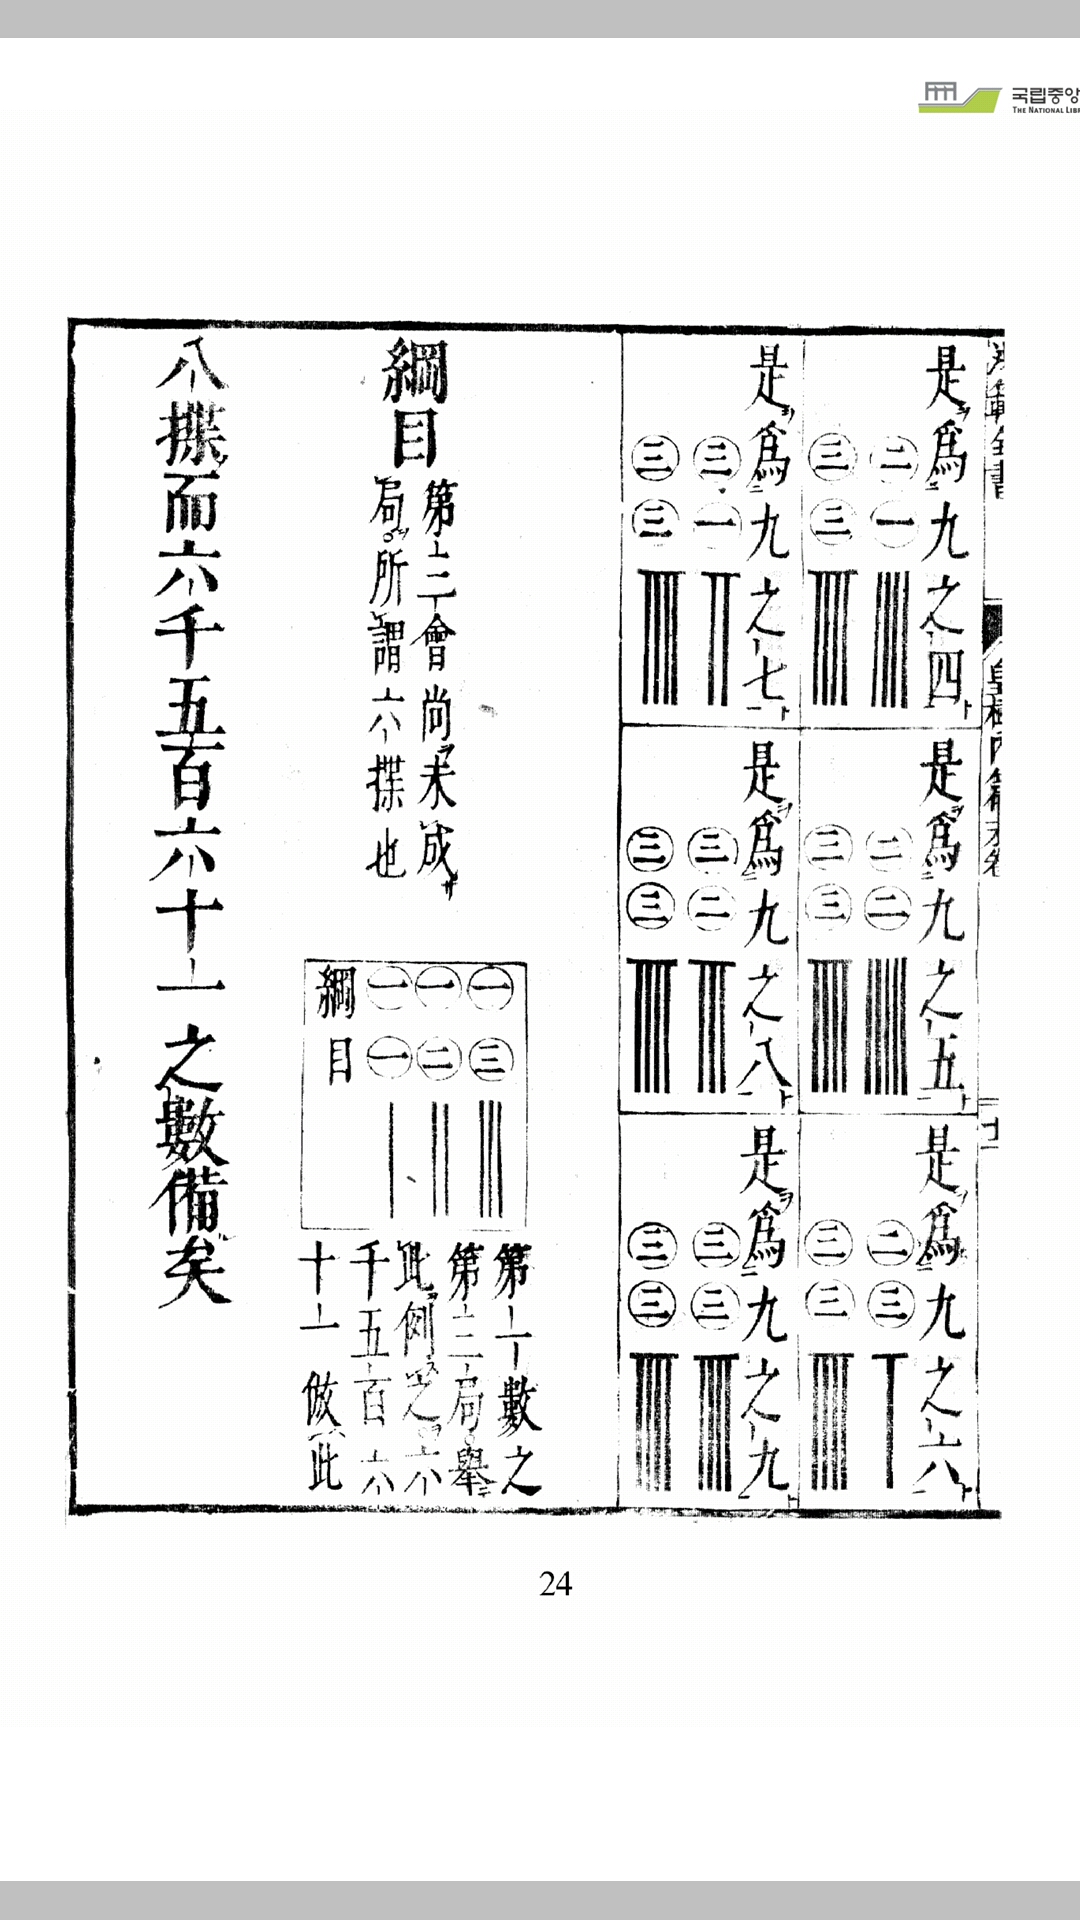 국립중앙
THE NATIONAL LIBR
是爲九之四
㊁㊀
㊂㊂
是爲九之五
㊁㊁
㊂㊂
是爲九之六
㊁㊂
㊂㊂
是爲九之七
㊂㊀
㊂㊂
是爲九之八
㊂㊁
㊂㊂
是爲九之九
㊂㊂
㊂㊂
綱目
第三會尚未成
局所謂六揲也
㊀㊂
㊀㊁
㊀㊀
綱目
第一數之
第三局擧
此例之六
千五百六
十一倣此
八揲而六千五百六十一之數備矣
24